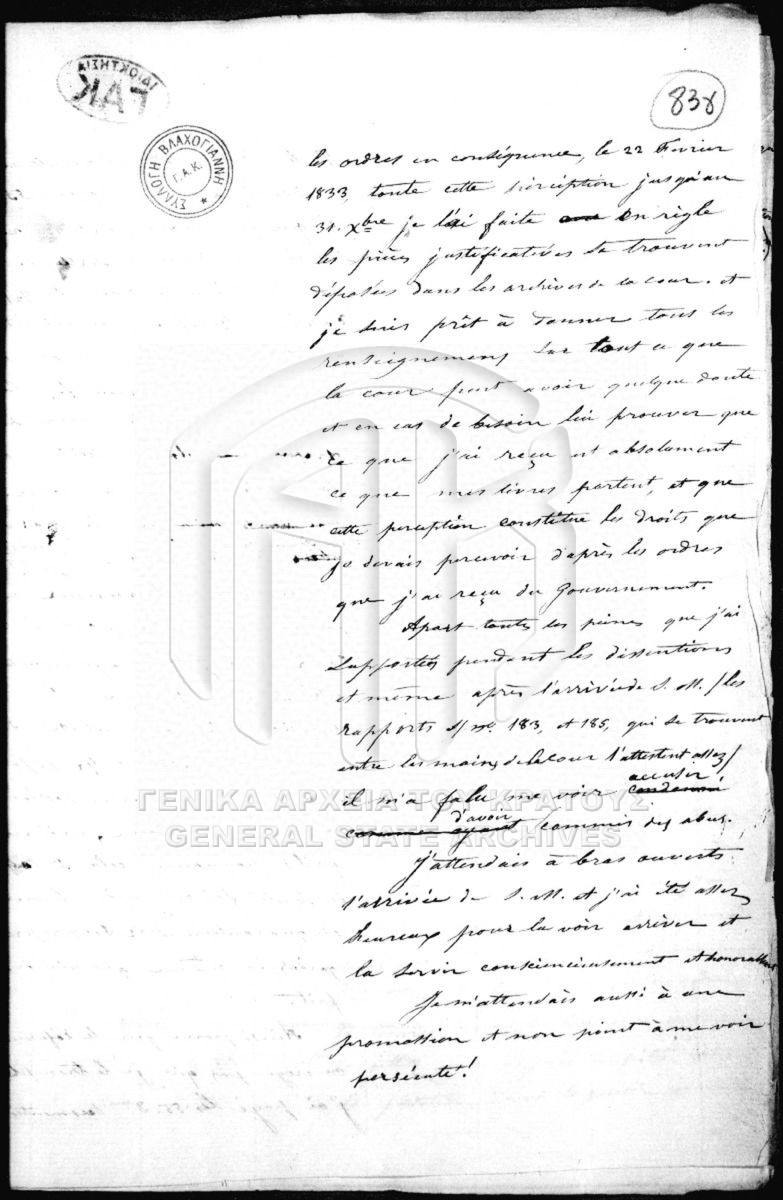 ΙΔΙΟΚΤΗΣΙΑ
ΓΑΚ
ΣΥΛΛΟΓΗ ΒΛΑΧΟΓΙΑΝΝΗ
Γ.Α.Κ.
838
les ordres en conséquence, le 22 Fevrier
1833, toute cette perception jusqu'au
31. Xbre je l'ai faite en règle
les pièces justificatives se trouvent
déposées dans les archives de la cour. et
je suis prêt à donner tous les
renseignemens sur tout ce que
la cour peut avoir quelque doute
et en cas de besoin lui prouver que
ce que j'ai reçu est absolument
ce que mes livres portent, et que
cette perception constitue les droits que
je devais percevoir d'après les ordres
que j'ai reçu du Gouvernement.
Apart toutes les peines que j'ai
supportés pendant les dissentions
et même après l'arrivée de S. M. / les
rapports s/ no. 183, et 185, qui se trouvent
entre les mains de la cour l'attestent assez /
il m'a falu me voir condamné accuser
d'avoir commis des abus.
J'attendais à bras ouverts
l'arrivée de S. M. et j'ai été assez
heureux pour la voir arriver et
la servir consciencieusement et
Je m'attendais aussi à une
promossion et non point à me voir
persécuté!
ΓΕΝΙΚΑ ΑΡΧΕΙΑ ΤΟΥ ΚΡΑΤΟΥΣ
GENERAL STATE ARCHIVES